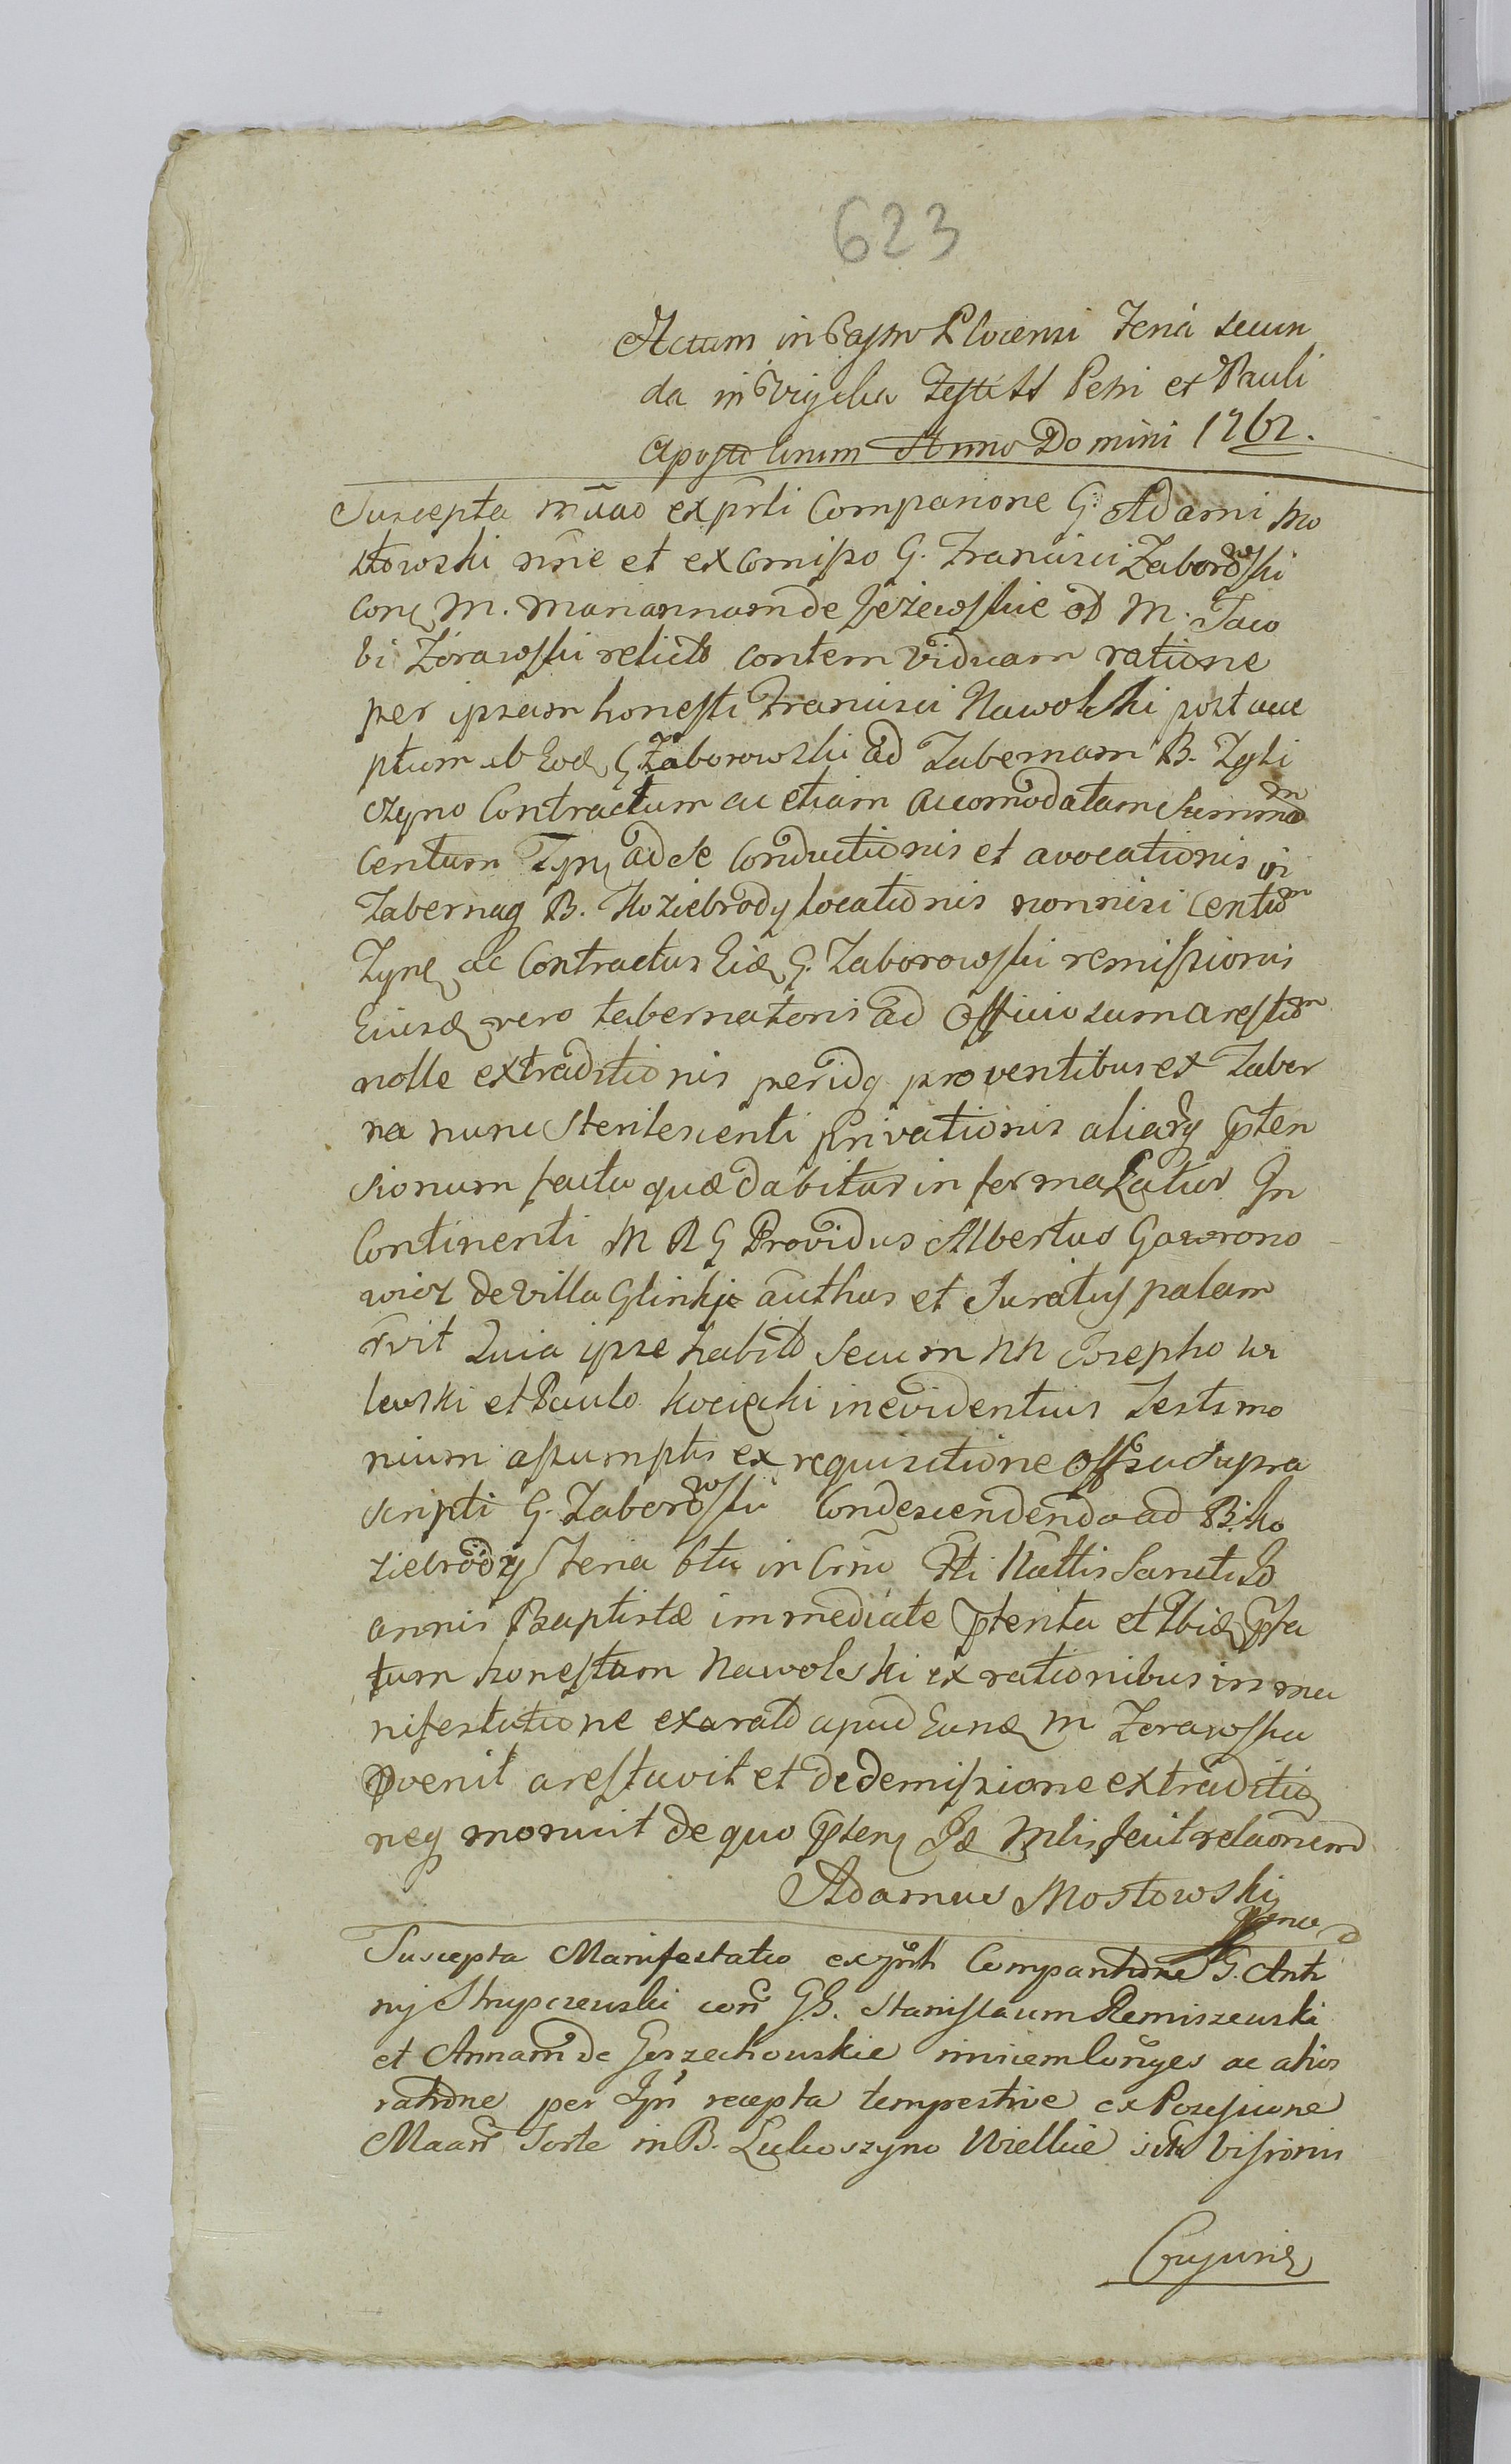 623
Actum in Castro Plocensi Feria secun
da in Vigilia Festi SS Petri et Pauli
Apostolorum Anno Domini 1762.
Suscepta mãao ex pñti Comparione G. Adami Mo
stowski nñe et ex Comisso G. Francisci Zaborowski
con M. Mariannam de Jeżewskie od M. Jaco
bi Zórawski relicto contem viduam ratione
per ipsam honesti Francisci Nawolski post acce
ptum ab Eod G Zaborowski ad Tabernam B.
czyno Contractum ac etiam accomodatam Summam
Centum ad se Conductionis et avocationis in
Taberna B. Koziebrody locationis nonnisi Centum
ac Contractus G. Zaborowski remissionis
Eiusd vero tabernatoris ad Officiosum arestum
nolle extraditionis peridq proventibus ex Taber
na nunc sterilescenti Privationis aliarq pten
sionum facta quæ dabitur in forma Latius In
Continenti M R G Providus Albertus Gawrono
wicz de Villa Glinki authus et Juratus palam
rvit Quia ipse habito Secum NN Josepho
lewski et Paulo Kocięcki in evidentius Testimo
nium assumptis ex requisitione Offsa supra
scripti G. Zaborowski Condescendendo ad B. Ko
ziebrody Feria 6ta in Crno Fti Nattis Sancti Jo
annis Baptistæ immediate pterita et Ibid pfa
tum honestum Nawolski ex rationibus in ma
nifestatione exarato apud Eand M Zorawska
pvenit arestavit et de demissione extraditio
neq monuit de quo pten Id Mlis fecit relaonem
Adamus Mostowski
Suscepta Manifestatio ex pñti Comparitione G. Anto
nij Strupczewski con GG. Stanislaum Remiszewski
et Annam de Gorzechowskie invicem Conges ac alios
ratione per Ipn recepta tempestive ex Possessione
Maañ Sorte in B. Lukoszyno Wielkie visionis